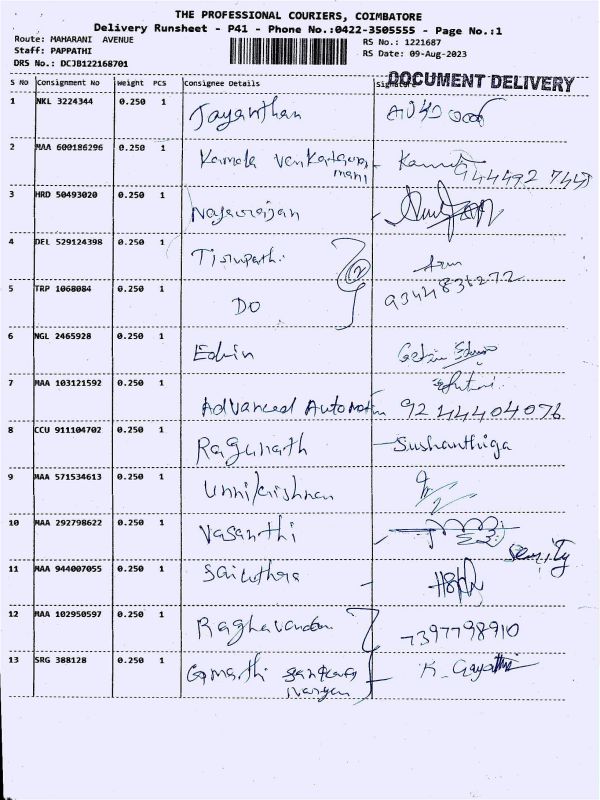 THE PROFESSIONAL COURIERS, COIMBATORE
Delivery Runsheet - P41 - Phone No.:0422-3505555 - Page No.:1
Route: MAHARANI AVENUE
Staff: PAPPATHI
DRS No.: DCJB122168701
RS No.: 1221687
RS Date: 09-Aug-2023
DOCUMENT DELIVERY
S NO Consignment No Weight PCS Consignee Details Signature
1 NKL 3224344 0.250 1 Jayanthan
2 MAA 600186296 0.250 1 Kamala Venkatasubra-
mani
3 HRD 50493020 0.250 1 Nagarajan
4 DEL 529124398 0.250 1 Tirupathi 2 Arun
5 TRP 1068084 0.250 1 DO 9344836272
6 NGL 2465928 0.250 1 Edwin
7 MAA 103121592 0.250 1 Advanced Automation 9244404076
8 CCU 911104702 0.250 1 Ragunath Sushanthiga
9 MAA 571534613 0.250 1 Unnikrishnan
10 MAA 292798622 0.250 1 Vasanthi
11 MAA 944007055 0.250 1
12 MAA 102950597 0.250 1 Raghavendran 7397798910
13 SRG 388128 0.250 1 Gomathi Sankara
narayan K. Gayathri